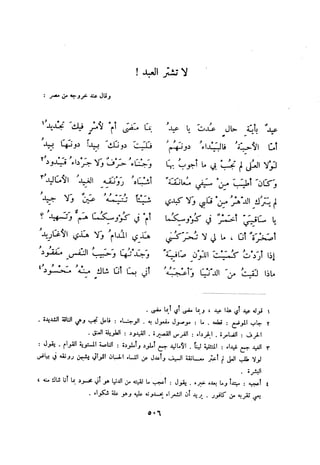 لا تشتر العبد !
وقال عند خروجه من مصر :
عيدٌ بأيةِ حالٍ عُدتَ يا عيدُ بما مضى أمْ لأمرٍ فيكَ تجديدُ ١
أمّا الأحبّةُ فالبيداءُ دونَهُمُ فليتَ دونكَ بيداً دونها بيدُ
لولا العلى لم تجُبْ بي ما أجوبُ بها وجناءُ حرفٌ ولا جرداءُ قيدودُ ٢
وكانَ أطيبَ منْ سيفي معانقةً أشباهُ رونقهِ الغيدُ الأماليدُ ٣
لم يتركِ الدهرُ منْ قلبي ولا كبدي شيئاً تتيّمهُ عينٌ ولا جيدُ
يا ساقيَيَّ أخمرٌ في كؤوسكما أمْ في كؤوسكما همٌّ وتسهيدُ ؟
أصخرةٌ أنا ، ما لي لا تحرّكني هذي المدامُ ولا هذي الأغاريدُ
إذا أردتُ كميتَ اللونِ صافيةً وجدتها وحبيبُ النفسِ مفقودُ
ماذا لقيتُ منَ الدنيا وأعجبهُ أني بما أنا شاكٍ منهُ محسودُ ٤
١ قوله عيد أي هذا عيد ، وبما مضى أي أبما مضى .
٢ جاب الموضع : قطعه . ما : موصول مفعول به . الوجناء : فاعل تجب وهي الناقة الشديدة .
الحرف : الضامرة . الجرداء : الفرس القصيرة . القيدود : الطويلة العنق .
٣ الغيد جمع غيداء : المتثنية ليناً . الأماليد جمع أملود وأملودة : الناعمة المستوية القوام . يقول :
لولا طلب العلى لم أختر معانقة السيف وأعدل عن النساء الحسان اللواتي يشبهن رونقه في بياض
البشرة .
٤ أعجبه : مبتدأ وما بعده خبره . يقول : أعجب ما لقيته من الدنيا هو أني محسود بما أنا شاك منه ،
يعني تقربه من كافور . يريد أن الشعراء يحسدونه عليه وهو علة شكواه .
٥٠٦